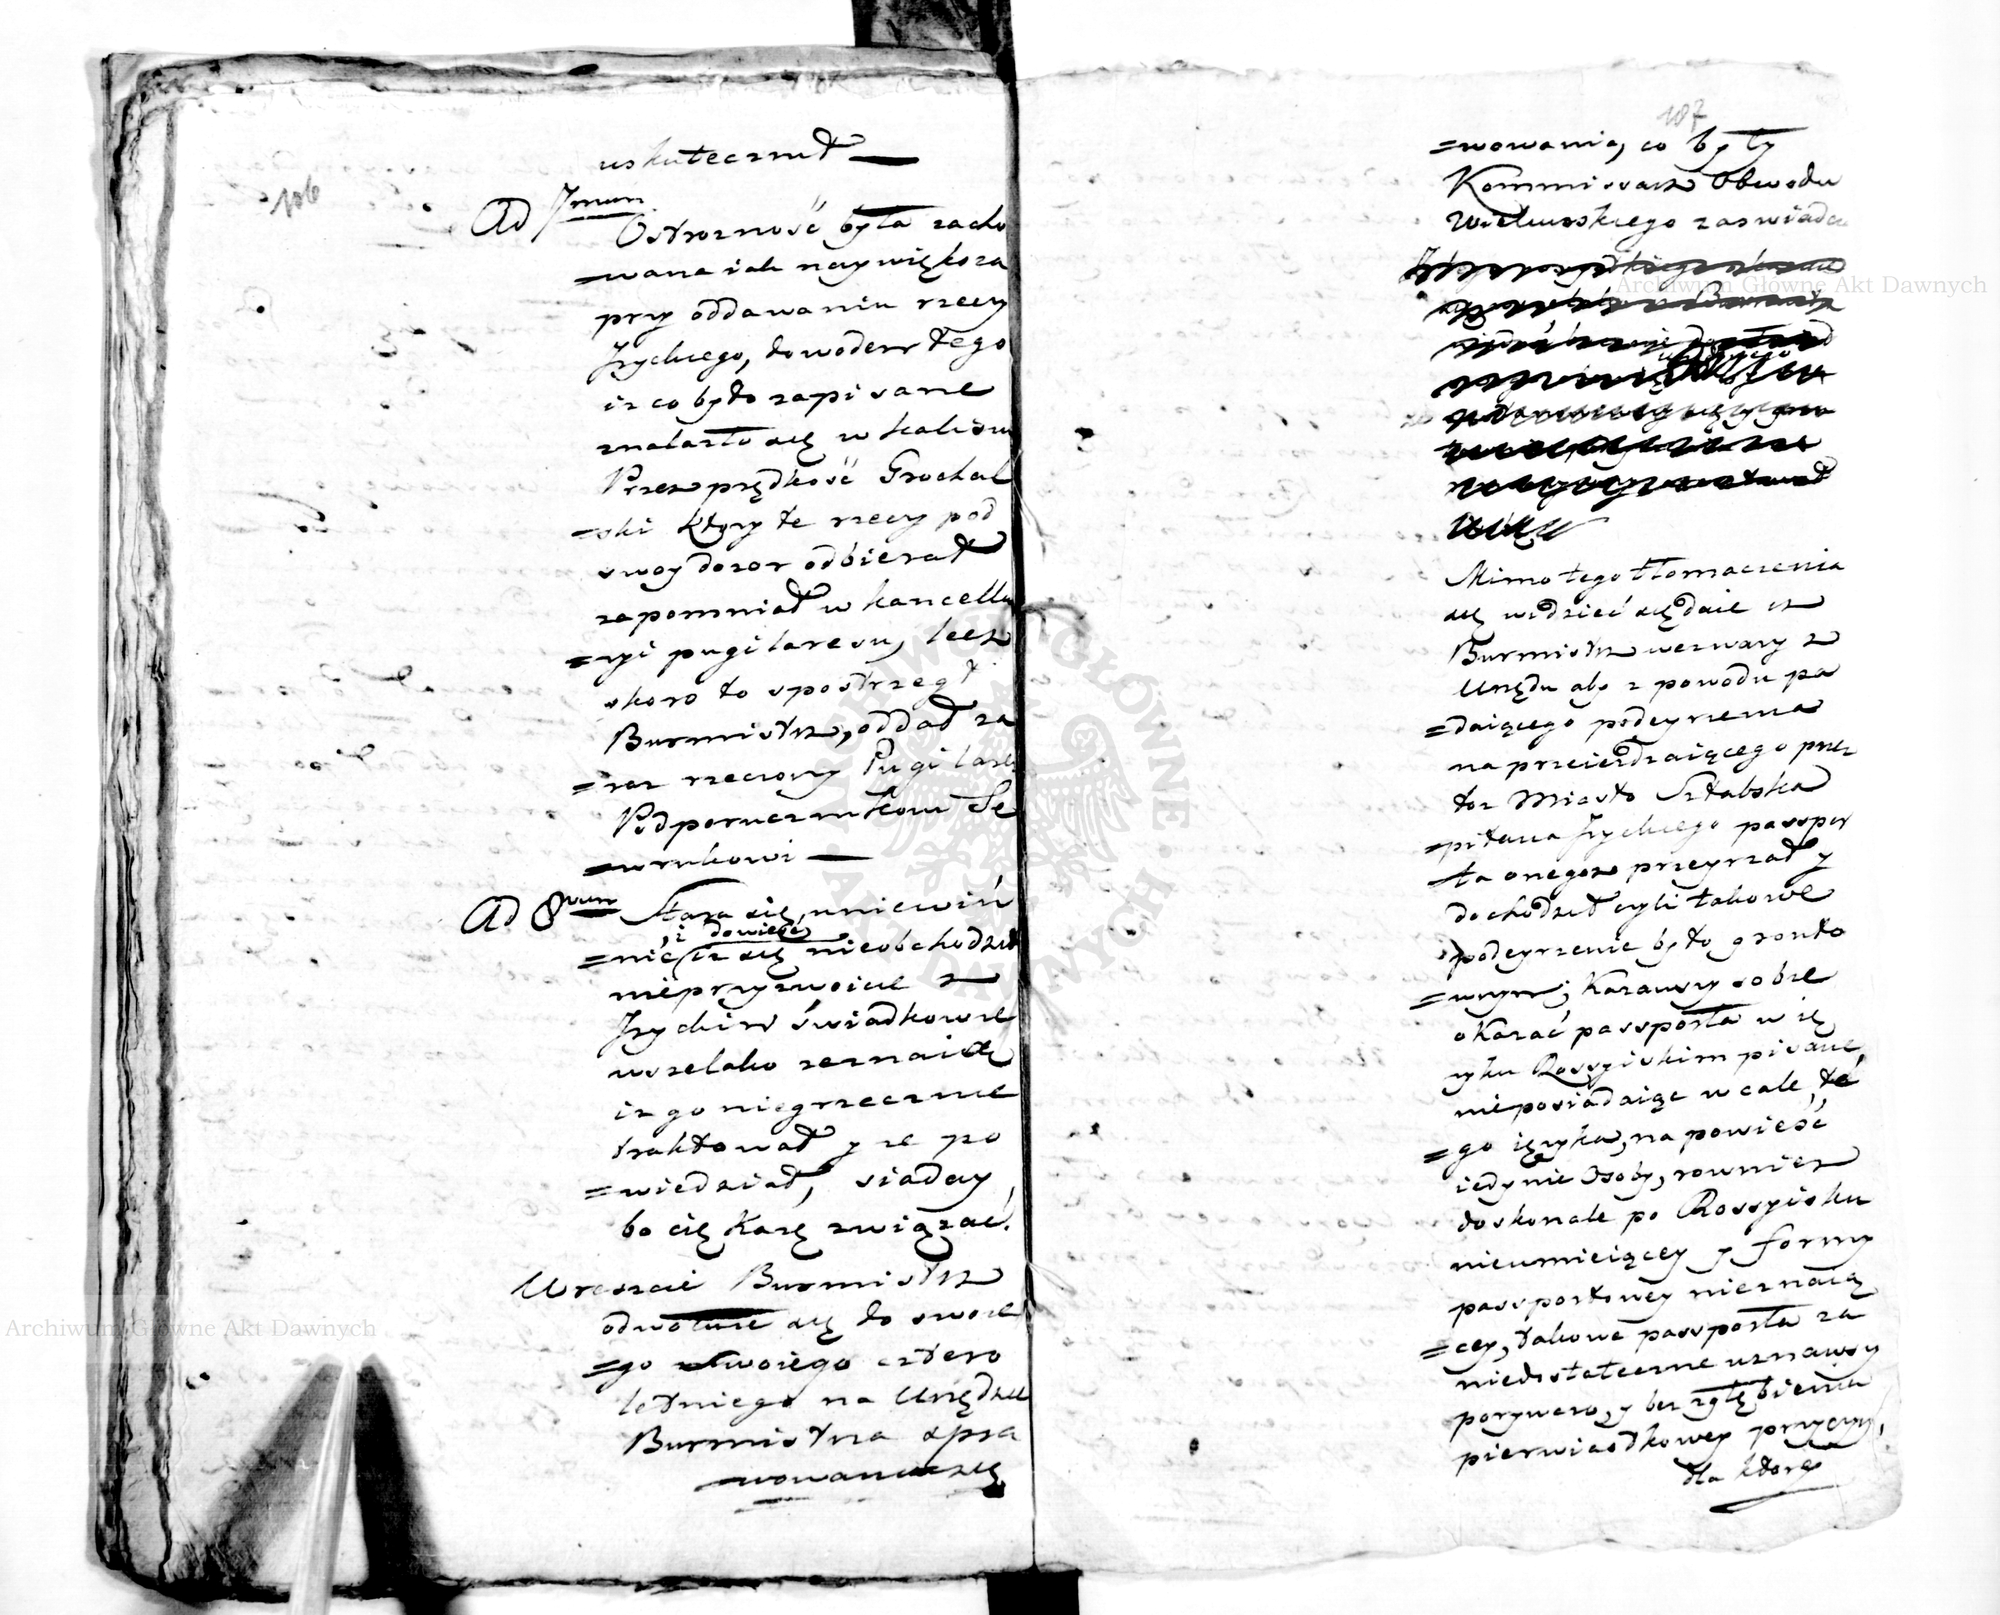 106
uskutecznił —
Ad 7mum
Ostrożność była zacho
=wana iak naywiększa
przy oddawaniu rzeczy
Jżyckiego, dowodem tego
iż co było zapisane
znalazło się w
Przez prędkość Grochal
=ski który te rzeczy pod
swoy dozor odbierał
zapomniał w kancella
=ryi pugilaresu, lecz
skoro to spostrzegł
Burmistrz, oddał za
=raz rzeczony Pugilares
Podporucznikowi Se
=wrukowi —
Ad 8vum Stara się uniewin
i dowieść
=nić iż się nieobchodził
nieprzyzwoicie z
Jżyckim świadkowie
wszelako zeznaią
iż go niegrzecznie
traktował y że po
=wiedział, siaday,
bo cię każę związać.
Wreszcie Burmistrz
odwołuie się do swoie
=go swoiego cztero
letniego na Urzędzie
Burmistrza spra
=wowania się
107
=wowania, co były
Kommissarz Obwodu
Wieluńskiego zaswiadcz
Mimo tego tłomaczenia
się widzieć się daie iż
Burmistrz wezwany z
Urzędu aby z powodu pa
=daiącego podeyrzenia
na przeieżdzaiącego przez
toż Miasto Sztabska
=pitana Jżyckiego passpor
ta onegoż przeyrzał y
dochodził czyli takowe
podeyrzenie było grunto
=wnym; Kazawszy sobie
okazać passporta w ię
zyku Rossyiskim pisane,
nie posiadaiąc wcale te
=go ięzyka, na powieść
iedynie Osoby, rownież
doskonale po Rossyisku
nieumieiącey y formy
passportowey nieznaią
=cey, takowe passporta za
niedostateczne uznawszy
porywczo, y bez zgłębienia
pierwiastkowey przyczyny,
dla którey
Archiwum Główne Akt Dawnych
Archiwum Główne Akt Dawnych
ARCHIWUM GŁÓWNE · AKT DAWNYCH ·